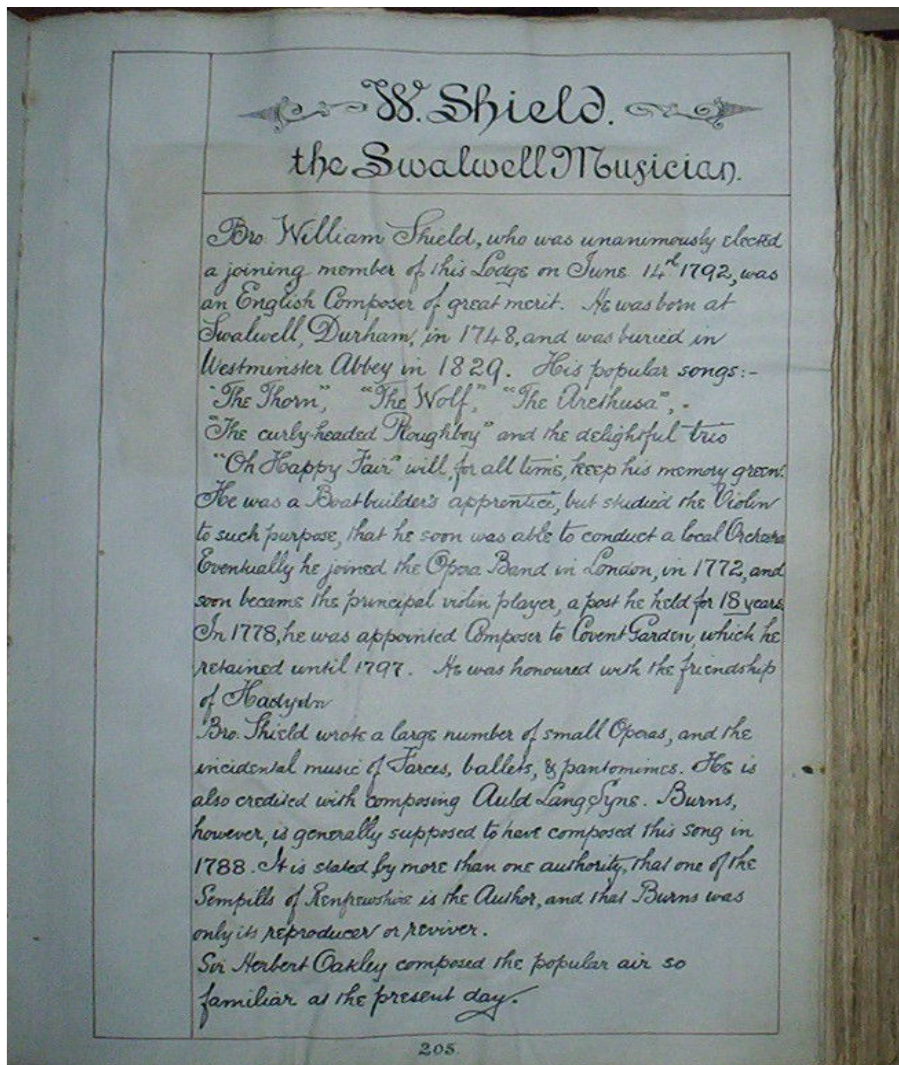 W. Shield.
the Swalwell Musician.
Bro. William Shield, who was unanimously elected
a joining member of this Lodge on June 14th 1792, was
an English Composer of great merit. He was born at
Swalwell, Durham, in 1748, and was buried in
Westminster Abbey in 1829. His popular songs:-
"The Thorn", "The Wolf", "The Arethusa", -
"The curly-headed Ploughboy" and the delightful trio
"Oh Happy Fair" will, for all time, keep his memory green.
He was a Boatbuilder's apprentice, but studied the Violin
to such purpose, that he soon was able to conduct a local Orchestra
Eventually he joined the Opera Band in London, in 1772, and
soon became the principal violin player, a post he held for 18 years.
In 1778, he was appointed Composer to Covent Garden, which he
retained until 1797. He was honoured with the friendship
of Hadydn
Bro. Shield wrote a large number of small Operas, and the
incidental music of Farces, ballets, & pantomimes. He is
also credited with composing Auld Lang Syne. Burns,
however, is generally supposed to have composed this song in
1788. It is stated by more than one authority, that one of the
Sempills of Renfrewshire is the Author, and that Burns was
only its reproducer or reviver.
Sir Herbert Oakley composed the popular air so
familiar at the present day.
205